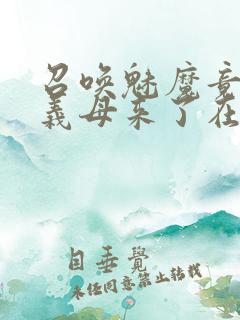 召唤魅魔竟
義母来了在
目垂覺
未经同意禁止转载